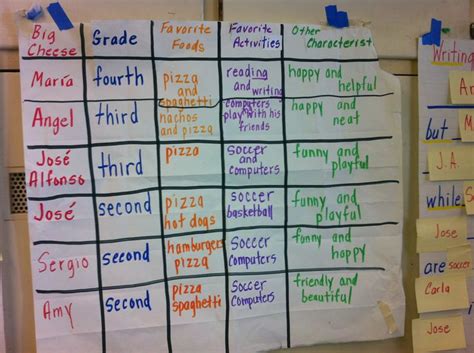 Big
Cheese
Grade
Favorite
Foods
Favorite
Activities
Other
Characterist
María
fourth
pizza
and
spaghetti
reading
and writing
happy and
helpful
Angel
third
nachos
and pizza
computers
play with his
friends
happy and
neat
José
Alfonso
third
pizza
soccer
and
computers
funny and
playful
José
second
pizza
hot dogs
soccer
basketball
funny and
playful
Sergio
second
hamburgers
pizza
Soccer
computers
funny and
happy
Amy
second
pizza
spaghetti
Soccer
Computers
friendly and
beautiful
Writing
but
J.A.
while
Jose
are soccer
Carla
Jose